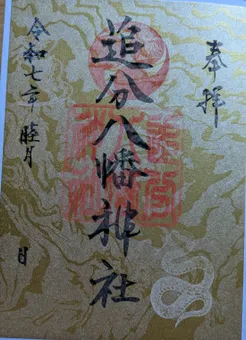 奉拝
追分八幡神社
令和七年睦月
日